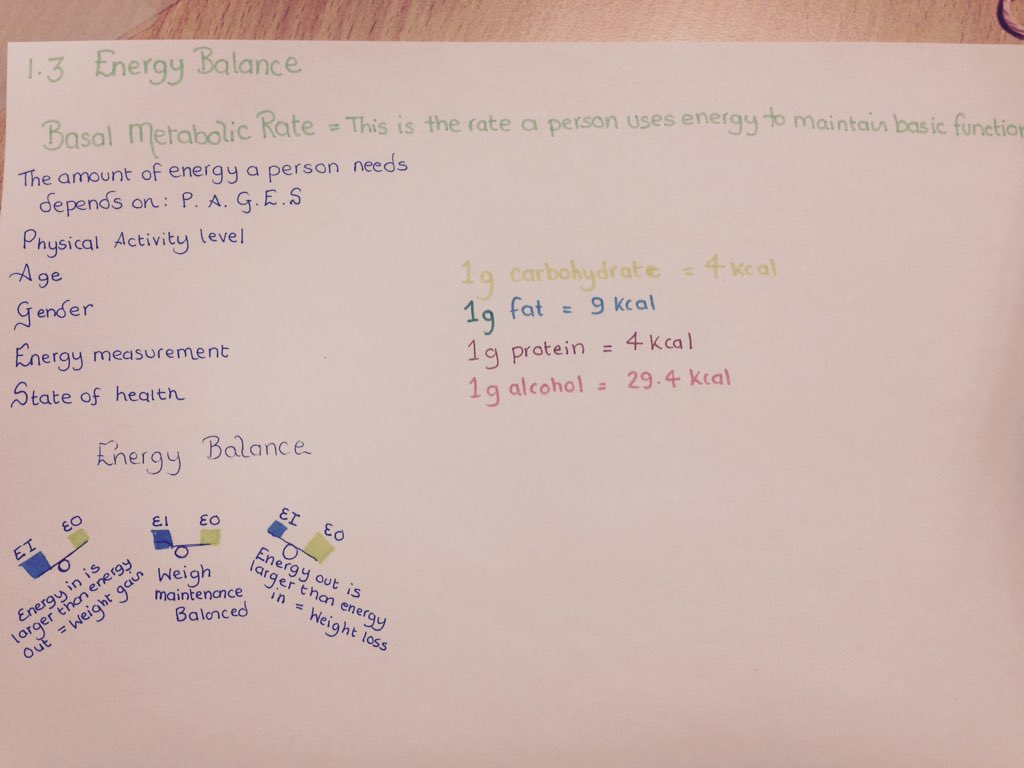 1.3 Energy Balance
Basal Metabolic Rate = This is the rate a person uses energy to maintain basic function
The amount of energy a person needs
depends on: P. A. G. E. S
Physical Activity level
Age
Gender
Energy measurement
State of health
1g carbohydrate = 4 kcal
1g fat = 9 kcal
1g protein = 4 kcal
1g alcohol = 29.4 kcal
Energy Balance
EI EO
Energy in is
larger than energy
out = Weight gain
EI EO
Weigh
maintenance
Balanced
EI EO
Energy out is
larger than energy
in = Weight loss